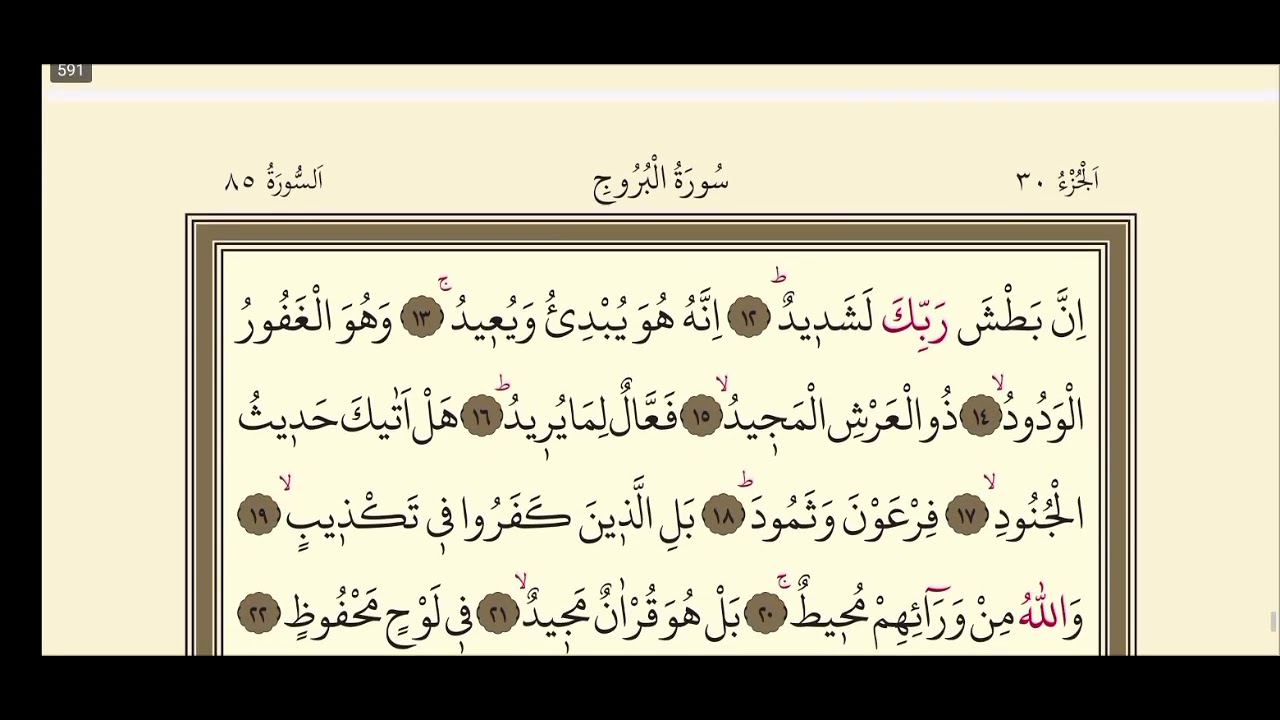 591
اَلْجُزْءُ ٣٠ سُورَةُ الْبُرُوجِ اَلسُّورَةُ ٨٥
اِنَّ بَطْشَ رَبِّكَ لَشَدٖيدٌ ؕ ١٢ اِنَّهُ هُوَ يُبْدِئُ وَيُعٖيدُ ۚ ١٣ وَهُوَ الْغَفُورُ
الْوَدُودُ ۙ ١٤ ذُو الْعَرْشِ الْمَجٖيدُ ۙ ١٥ فَعَّالٌ لِمَا يُرٖيدُ ؕ ١٦ هَلْ اَتٰيكَ حَدٖيثُ
الْجُنُودِ ۙ ١٧ فِرْعَوْنَ وَثَمُودَ ؕ ١٨ بَلِ الَّذٖينَ كَفَرُوا فٖى تَكْذٖيبٍ ۙ ١٩
وَاللّٰهُ مِنْ وَرَٓائِهِمْ مُحٖيطٌ ۚ ٢٠ بَلْ هُوَ قُرْاٰنٌ مَجٖيدٌ ۙ ٢١ فٖى لَوْحٍ مَحْفُوظٍ ٢٢